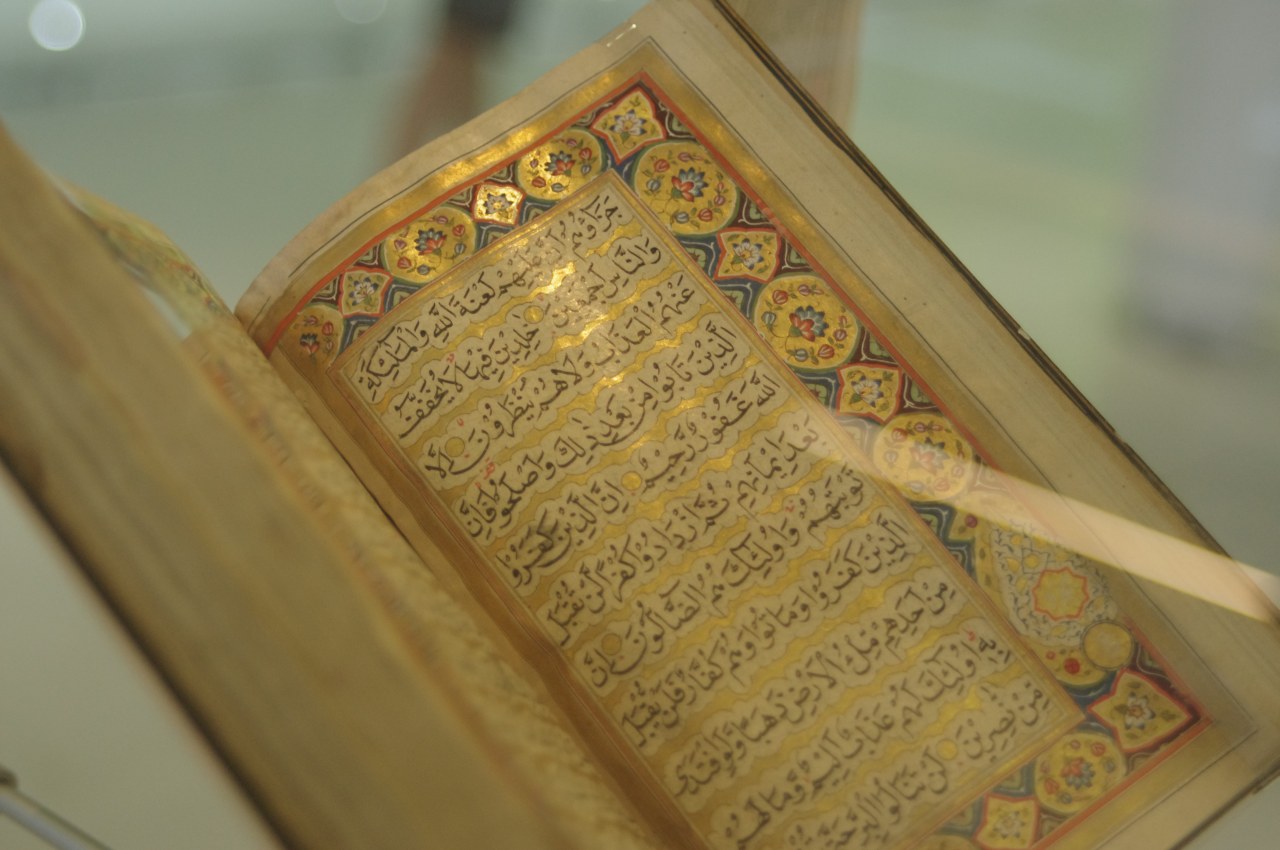 جَزَاؤُهُمْ أَنَّ عَلَيْهِمْ لَعْنَةَ اللَّهِ وَالْمَلٰئِكَةِ
وَالنَّاسِ أَجْمَعِينَ خٰلِدِينَ فِيهَا لَا يُخَفَّفُ
عَنْهُمُ الْعَذَابُ وَلَا هُمْ يُنْظَرُونَ إِلَّا
الَّذِينَ تَابُوا مِنْ بَعْدِ ذٰلِكَ وَأَصْلَحُوا فَإِنَّ
اللَّهَ غَفُورٌ رَحِيمٌ إِنَّ الَّذِينَ كَفَرُوا
بَعْدَ إِيمَانِهِمْ ثُمَّ ازْدَادُوا كُفْرًا لَنْ تُقْبَلَ
تَوْبَتُهُمْ وَأُولٰئِكَ هُمُ الضَّالُّونَ إِنَّ
الَّذِينَ كَفَرُوا وَمَاتُوا وَهُمْ كُفَّارٌ فَلَنْ يُقْبَلَ
مِنْ أَحَدِهِمْ مِلْءُ الْأَرْضِ ذَهَبًا وَلَوِ افْتَدٰى
بِهِ أُولٰئِكَ لَهُمْ عَذَابٌ أَلِيمٌ وَمَا لَهُمْ
مِنْ نٰصِرِينَ لَنْ تَنَالُوا الْبِرَّ حَتّٰى